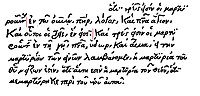 ὅτι τρεῖς εἰσιν οἱ μαρτυ
ροῦντες ἐν τῷ οὐνῷ, πηρ, λόγος, καὶ πνα ἅγιον,
καὶ οὗτοι οἱ τρεῖς ἕν εἰσι. καὶ τρεῖς εἰσιν οἱ μαρτυ
ροῦντες ἐν τῇ γῇ, πνα, ὕδωρ, καὶ αἷμα, εἰ τὴν
μαρτυρίαν τῶν ἀνων λαμβάνομεν, ἡ μαρτυρία τοῦ
θυ μείζων ἐστίν, ὅτι αὕτη ἐστὶν ἡ μαρτυρία τοῦ θυ, ὅτι
μεμαρτύρηκε περὶ τοῦ υυ αὐτοῦ.